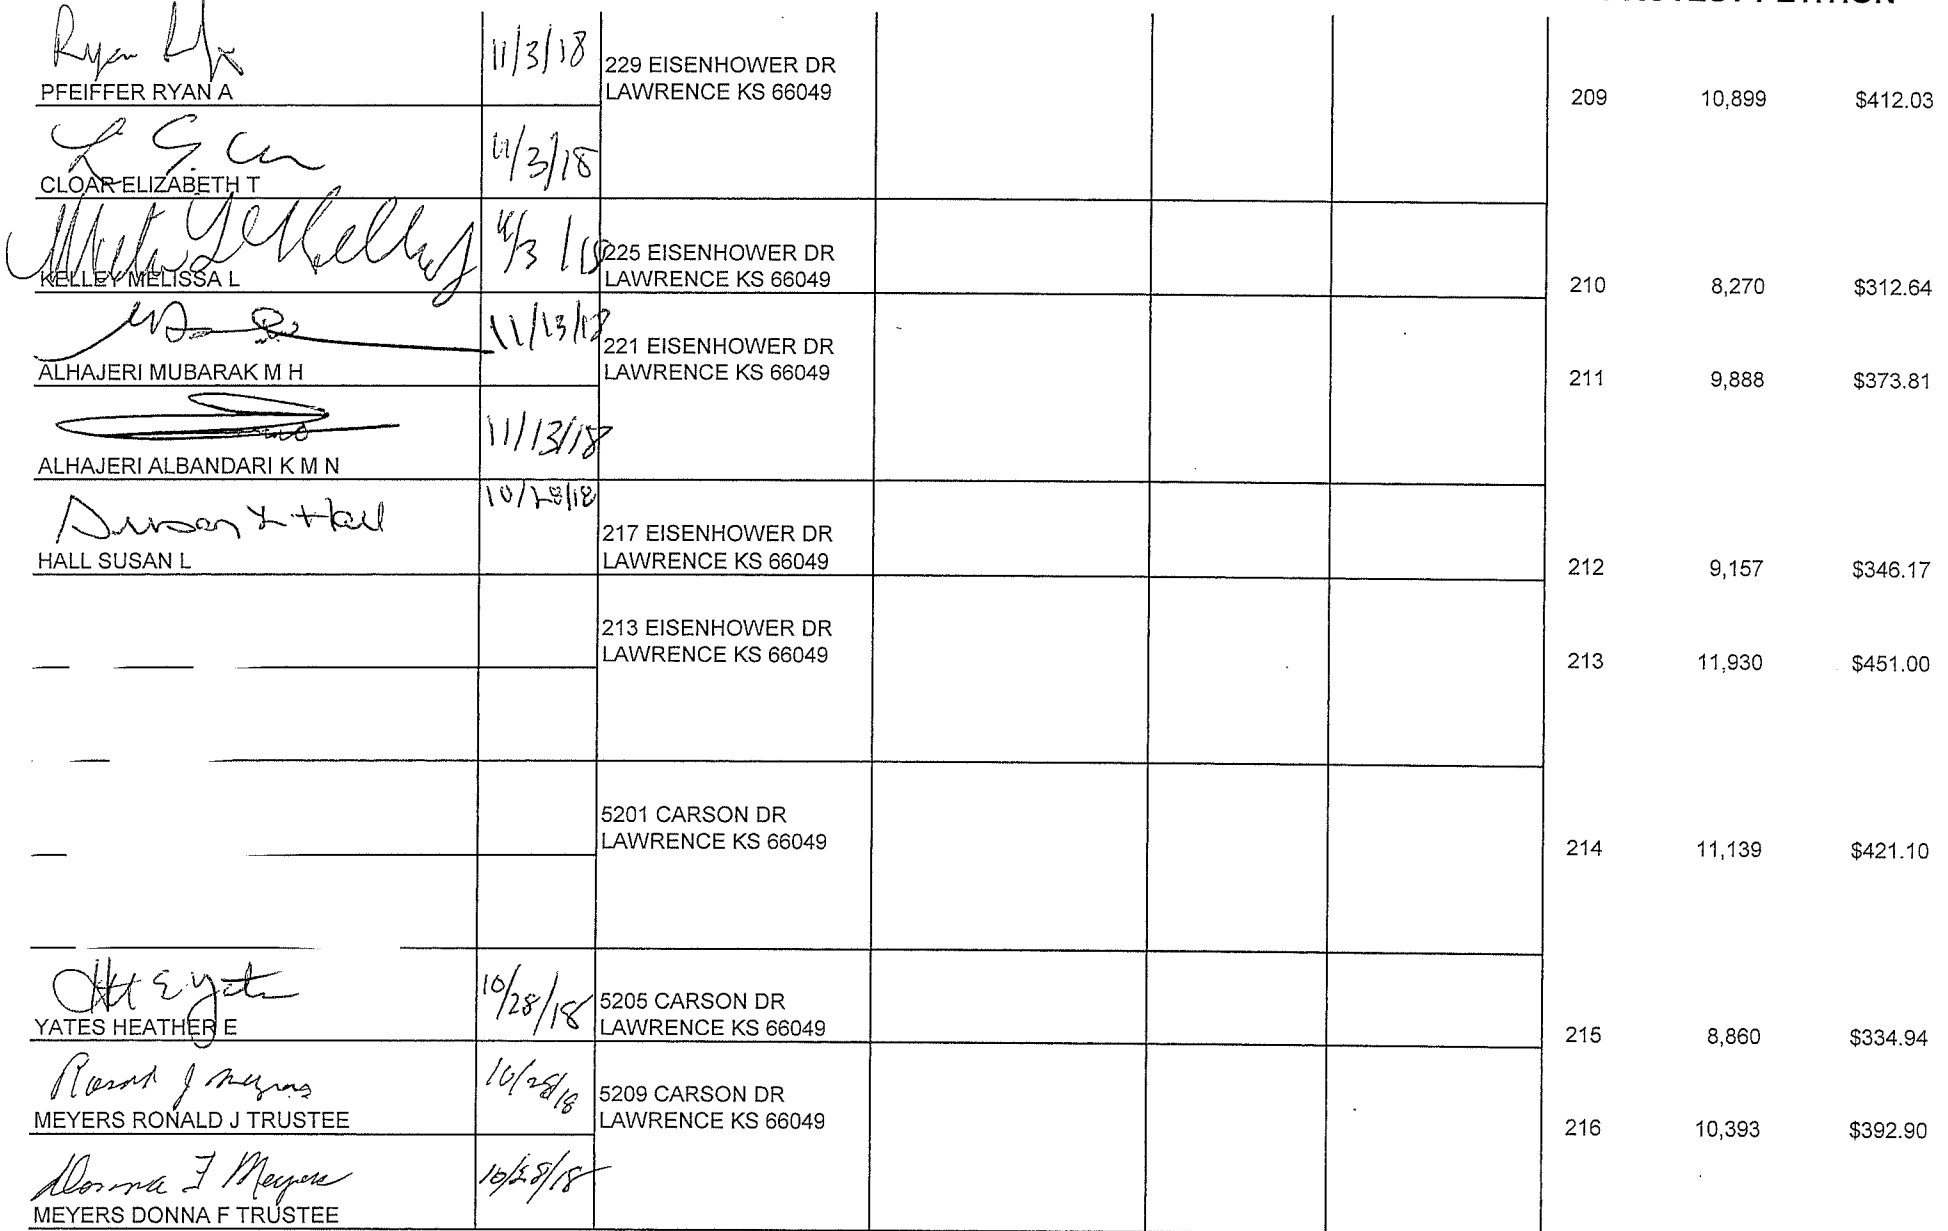 PROTEST PETITION
Ryan
11/3/18
PFEIFFER RYAN A
229 EISENHOWER DR
LAWRENCE KS 66049
209 10,899 $412.03
11/3/18
CLOAR ELIZABETH T
11/3/18
KELLEY MELISSA L
225 EISENHOWER DR
LAWRENCE KS 66049
210 8,270 $312.64
11/13/18
ALHAJERI MUBARAK M H
221 EISENHOWER DR
LAWRENCE KS 66049
211 9,888 $373.81
11/13/18
ALHAJERI ALBANDARI K M N
Susan L Hall
10/28/18
HALL SUSAN L
217 EISENHOWER DR
LAWRENCE KS 66049
212 9,157 $346.17
213 EISENHOWER DR
LAWRENCE KS 66049
213 11,930 $451.00
5201 CARSON DR
LAWRENCE KS 66049
214 11,139 $421.10
E Yates
10/28/18
YATES HEATHER E
5205 CARSON DR
LAWRENCE KS 66049
215 8,860 $334.94
Ronald J Meyers
10/28/18
MEYERS RONALD J TRUSTEE
5209 CARSON DR
LAWRENCE KS 66049
216 10,393 $392.90
Donna F Meyers
10/28/18
MEYERS DONNA F TRUSTEE